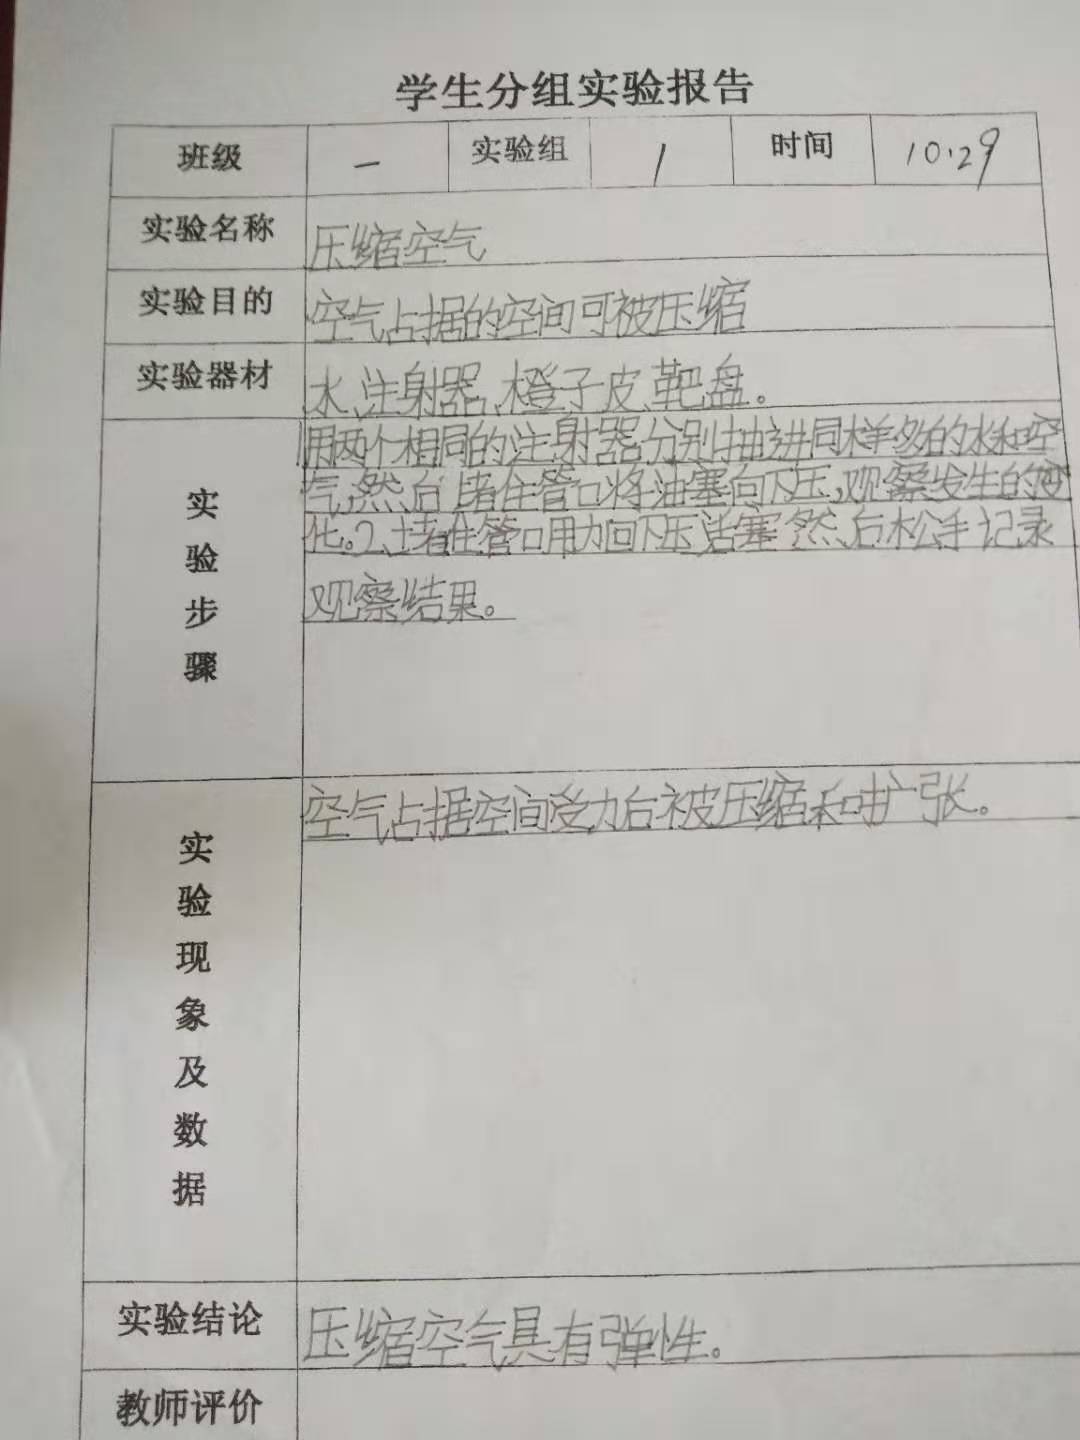 学生分组实验报告
班级 一 实验组 1 时间 10.29
实验名称 压缩空气
实验目的 空气占据的空间可被压缩
实验器材 水、注射器、橙子皮、靶盘。
实验步骤
用两个相同的注射器分别抽进同样多的水和空
气,然后堵住管口将油塞向下压,观察发生的变
化。2、堵住管口用力向下压活塞然后松手记录
观察结果。
实验现象及数据
空气占据空间受力后被压缩和扩张。
实验结论 压缩空气具有弹性。
教师评价